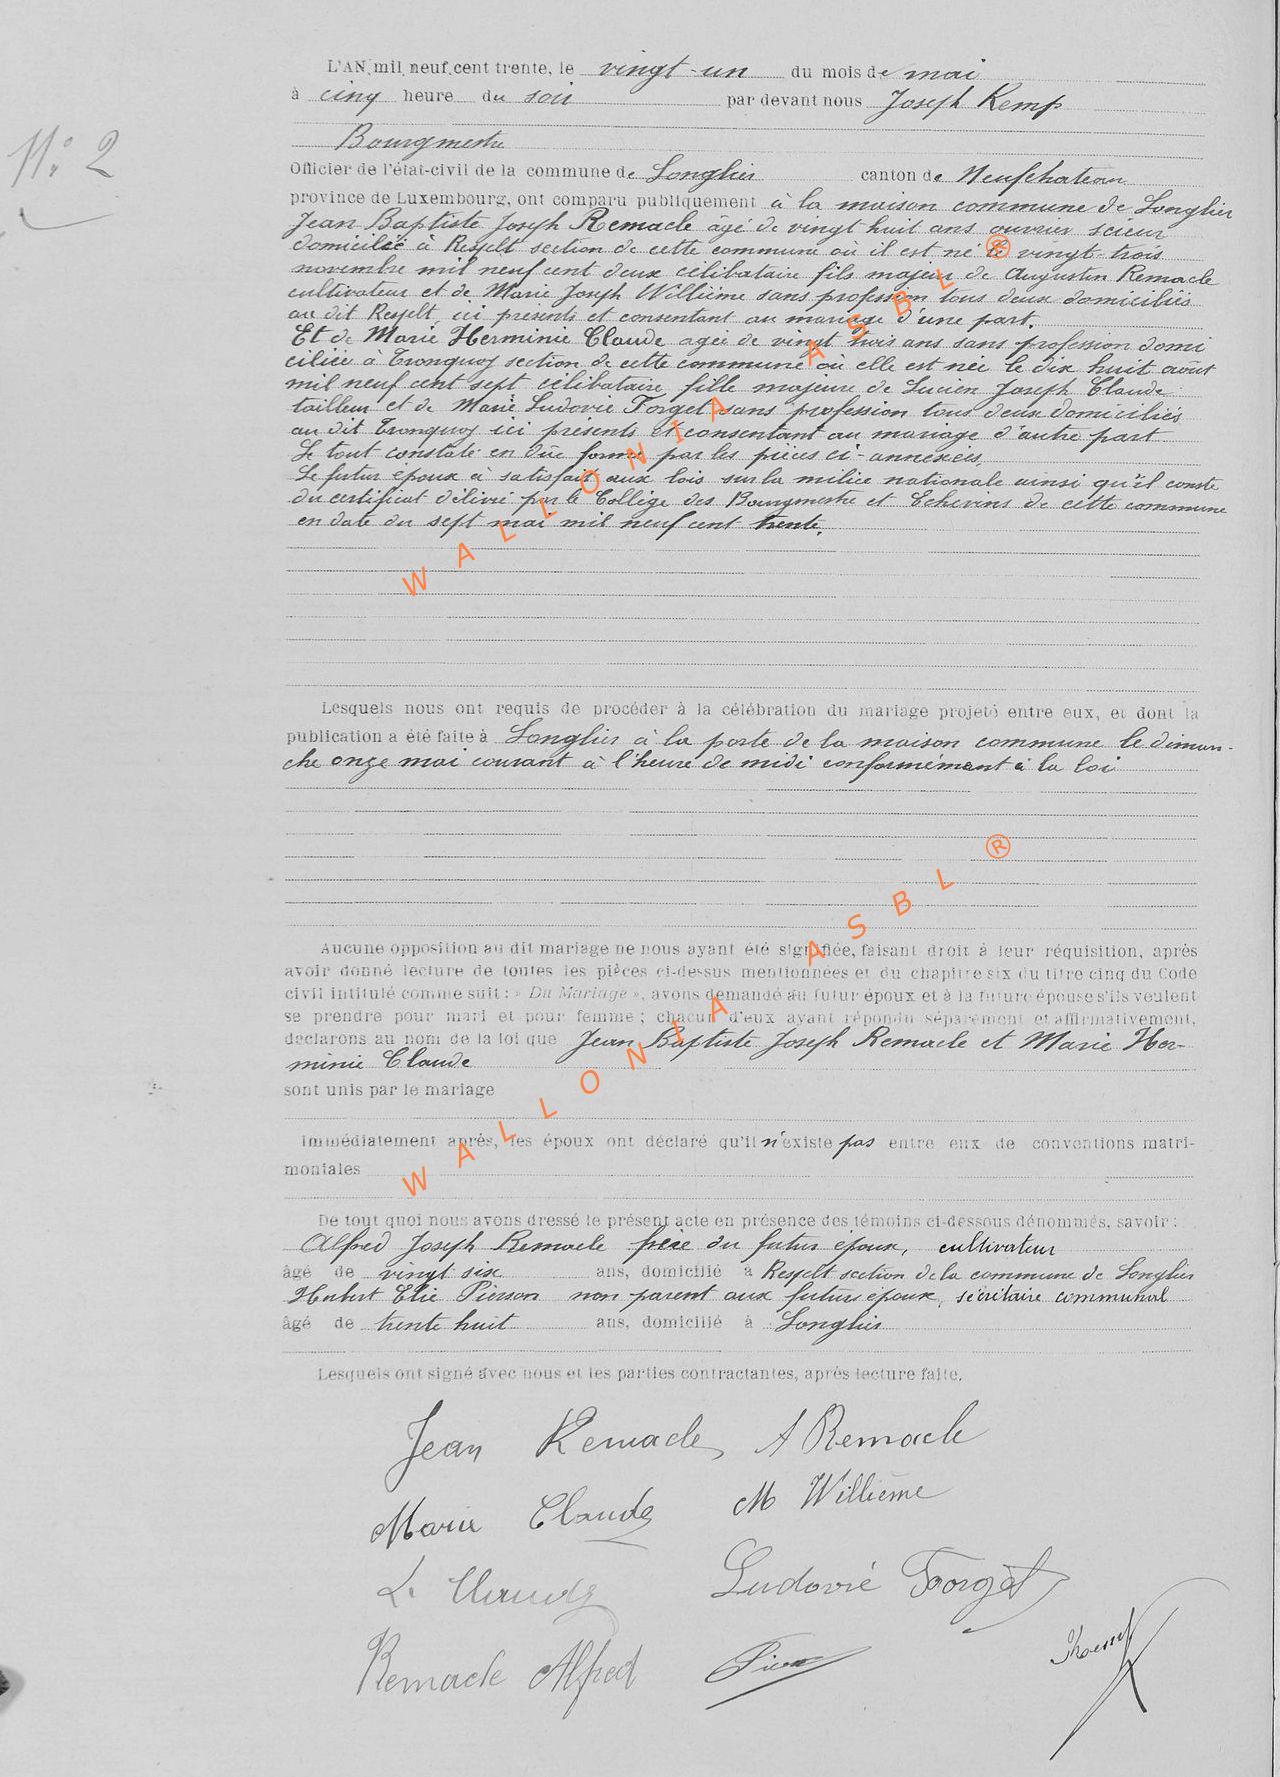 L'AN mil neuf cent trente, le vingt-un du mois de mai
à cinq heure du soir par devant nous Joseph Kemp
Bourgmestre
N° 2
Officier de l'état-civil de la commune de Longlier canton de Neufchateau
province de Luxembourg, ont comparu publiquement à la maison commune de Longlier
Jean Baptiste Joseph Remacle âgé de vingt huit ans ouvrier scieur
domicilié à Respelt section de cette commune où il est né le vingt-trois
novembre mil neuf cent deux célibataire fils majeur de Augustin Remacle
cultivateur et de Marie Joseph Willième sans profession tous deux domiciliés
au dit Respelt ici présents et consentant au mariage d'une part.
Et de Marie Herminie Claude agée de vingt trois ans sans profession domi
ciliée à Tronquoy section de cette commune où elle est née le dix huit août
mil neuf cent sept célibataire fille majeure de Lucien Joseph Claude
tailleur et de Marie Ludovie Forget sans profession tous deux domiciliés
au dit Tronquoy ici présents et consentant au mariage d'autre part
Le tout constaté en due forme par les pièces ci-annexées.
Le futur époux à satisfait aux lois sur la milice nationale ainsi qu'il conste
du certificat délivré par le Collège des Bourgmestre et Echevins de cette commune
en date du sept mai mil neuf cent trente.
Lesquels nous ont requis de procéder à la célébration du mariage projeté entre eux, et dont la
publication a été faite à Longlier à la porte de la maison commune le diman-
che onze mai courant à l'heure de midi conformément à la loi
Aucune opposition au dit mariage ne nous ayant été signifiée, faisant droit à leur réquisition, après
avoir donné lecture de toutes les pièces ci-dessus mentionnées et du chapitre six du titre cinq du Code
civil intitulé comme suit : « Du Mariage », avons demandé au futur époux et à la future épouse s'ils veulent
se prendre pour mari et pour femme ; chacun d'eux ayant répondu séparément et affirmativement,
déclarons au nom de la loi que Jean Baptiste Joseph Remacle et Marie Her-
minie Claude
sont unis par le mariage
Immédiatement après, les époux ont déclaré qu'il n'existe pas entre eux de conventions matri-
moniales
De tout quoi nous avons dressé le présent acte en présence des témoins ci-dessous dénommés, savoir :
Alfred Joseph Remacle frère du futur époux, cultivateur
âgé de vingt six ans, domicilié à Respelt section de la commune de Longlier
Hubert Elie Pierson non parent aux futurs époux, secrétaire communal
âgé de trente huit ans, domicilié à Longlier
Lesquels ont signé avec nous et les parties contractantes, après lecture faite.
Jean Remacle A Remacle
Marie Claude M Willième
L. Claude Ludovie Forget
Remacle Alfred
WALLONIA ASBL ®
WALLONIA ASBL ®